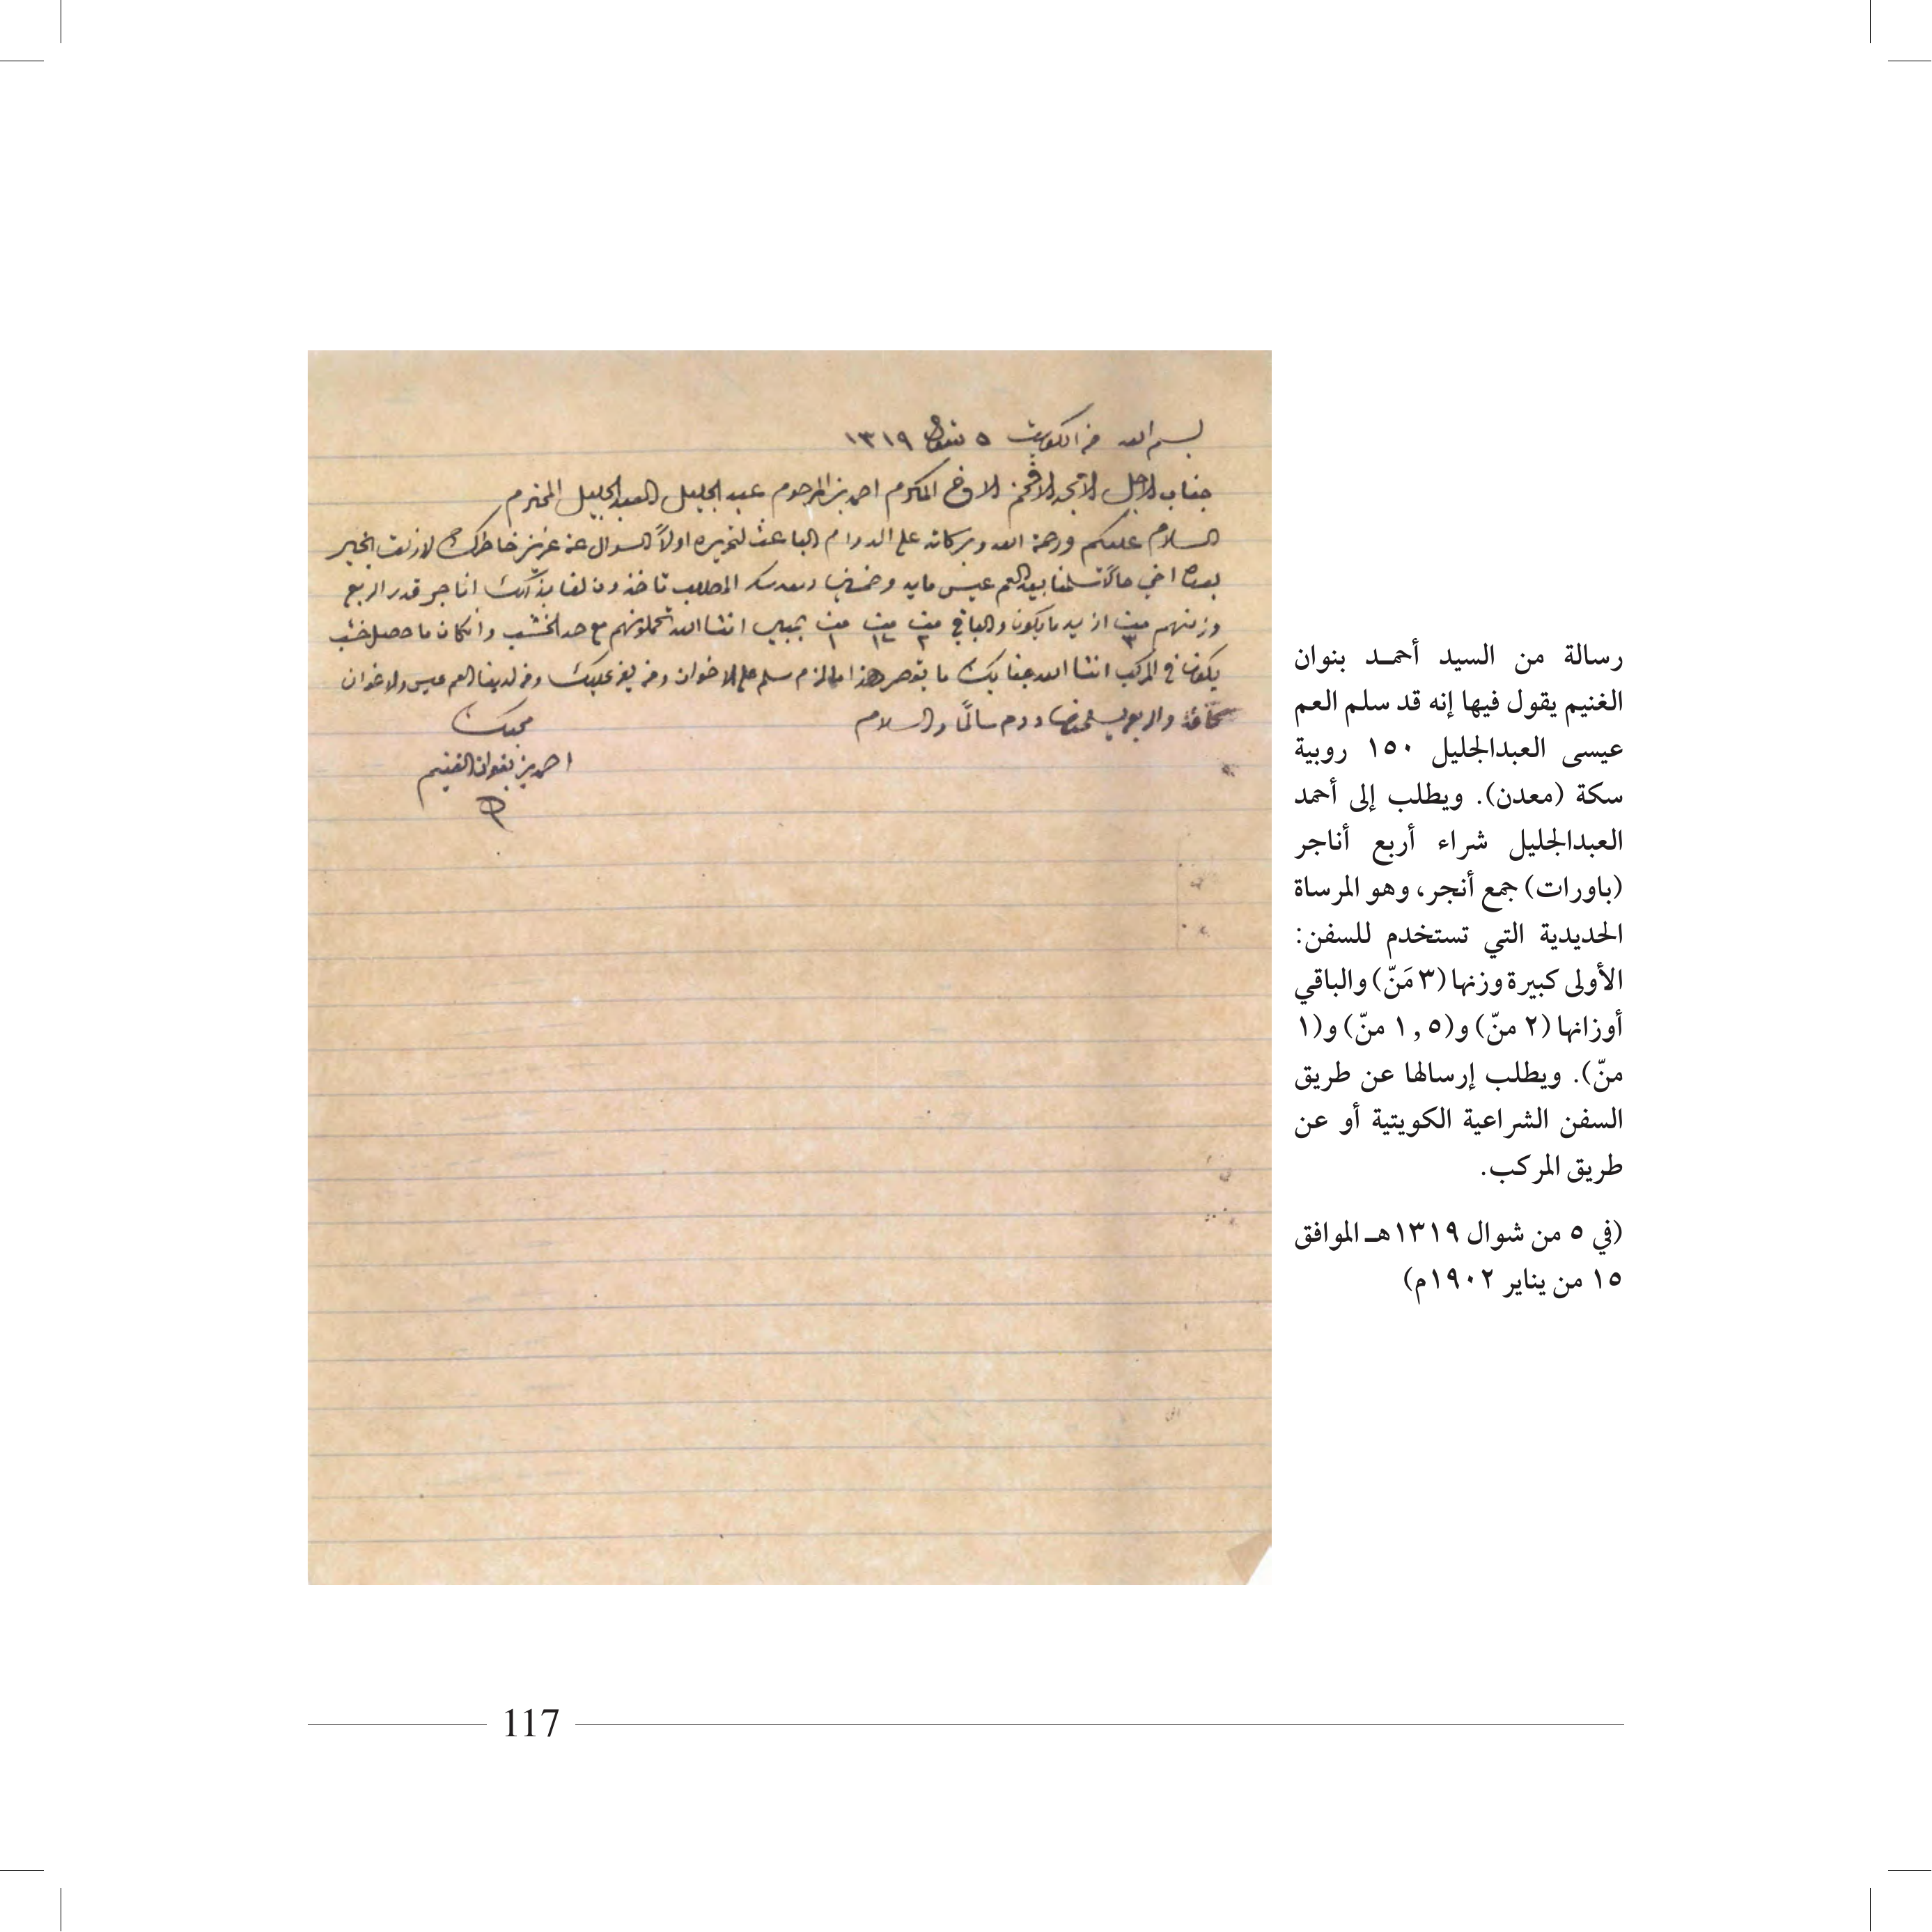 بسم الله من الكويت ٥ شوال ١٣١٩
جناب الاجل الامجد الافخم الاخ المكرم احمد بن المرحوم عبد الجليل العبد الجليل المحترم
السلام عليكم ورحمة الله وبركاته على الدوام الباعث لتحريره اولاً السوال عن عزيز خاطرك لازلت بخير
بعده اخي حالاً سلمنا بيد العم عيسى مايه وخمسين سكه المطلوب تاخذون لنا اناجر قدر اربع
وزنهم من ٣ والباقي من ٢ من من ١ انشا الله تحملونهم مع احد الخشب وانكان ما حصل خشب
يكون في المركب انشا الله جنابك ما تقصر هذا مالزم سلم على الاخوان ومن يعز عليك ومن لدينا العم عيسى والاخوان
كافة والربع ودم سالماً والسلام
محبك
احمد بن بنوان الغنيم
رسالة من السيد أحمـد بنوان
الغنيم يقول فيها إنه قد سلم العم
عيسى العبدالجليل ١٥٠ روبية
سكة (معدن). ويطلب إلى أحمد
العبدالجليل شراء أربع أناجر
(باورات) جمع أنجر، وهو المرساة
الحديدية التي تستخدم للسفن:
الأولى كبيرة وزنها (٣ مَنّ) والباقي
أوزانها (٢ منّ) و(١,٥ منّ) و(١
منّ). ويطلب إرسالها عن طريق
السفن الشراعية الكويتية أو عن
طريق المركب.
(في ٥ من شوال ١٣١٩هـ الموافق
١٥ من يناير ١٩٠٢م)
117